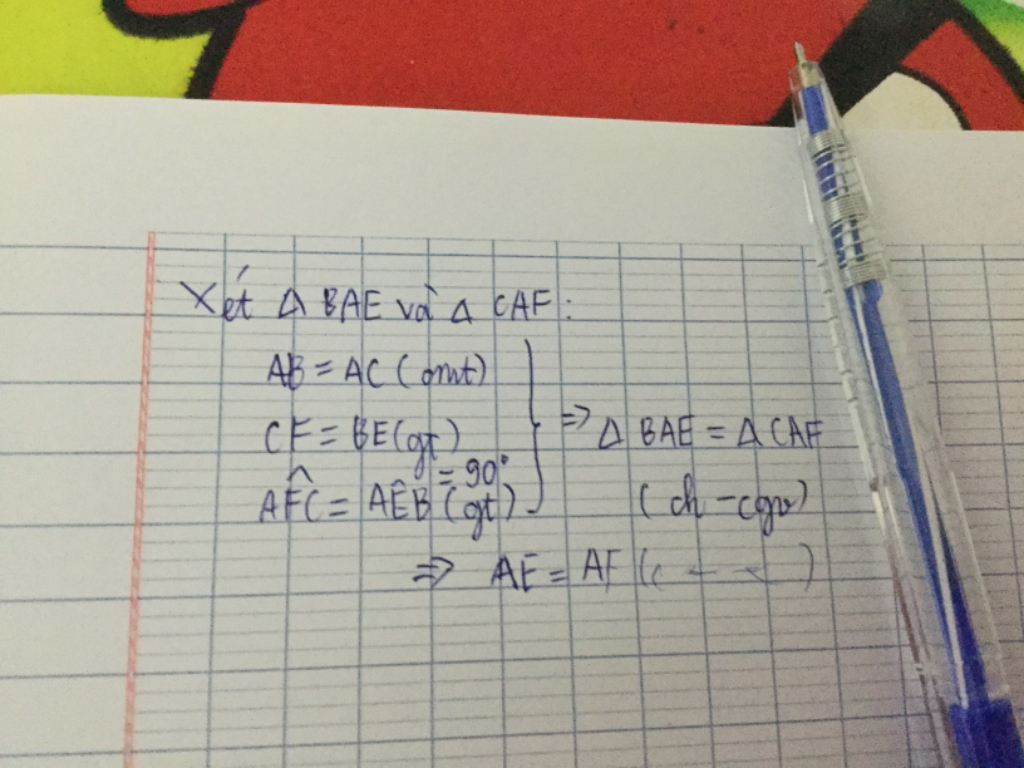 Xét Δ BAE và Δ CAF:
AB = AC (cmt)
CF = BE (gt)
AF̂C = AÊB = 90° (gt)
⇒ Δ BAE = Δ CAF
(ch - cgv)
⇒ AE = AF (